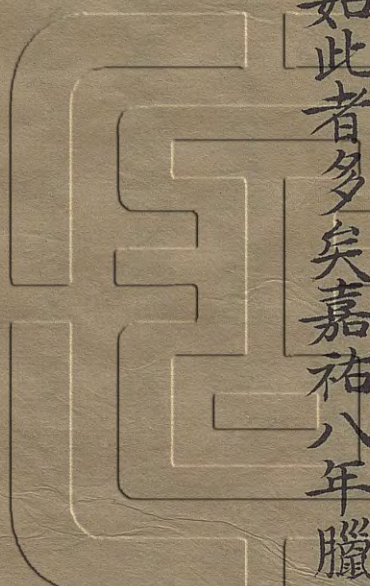 如此者多矣嘉祐八年臘